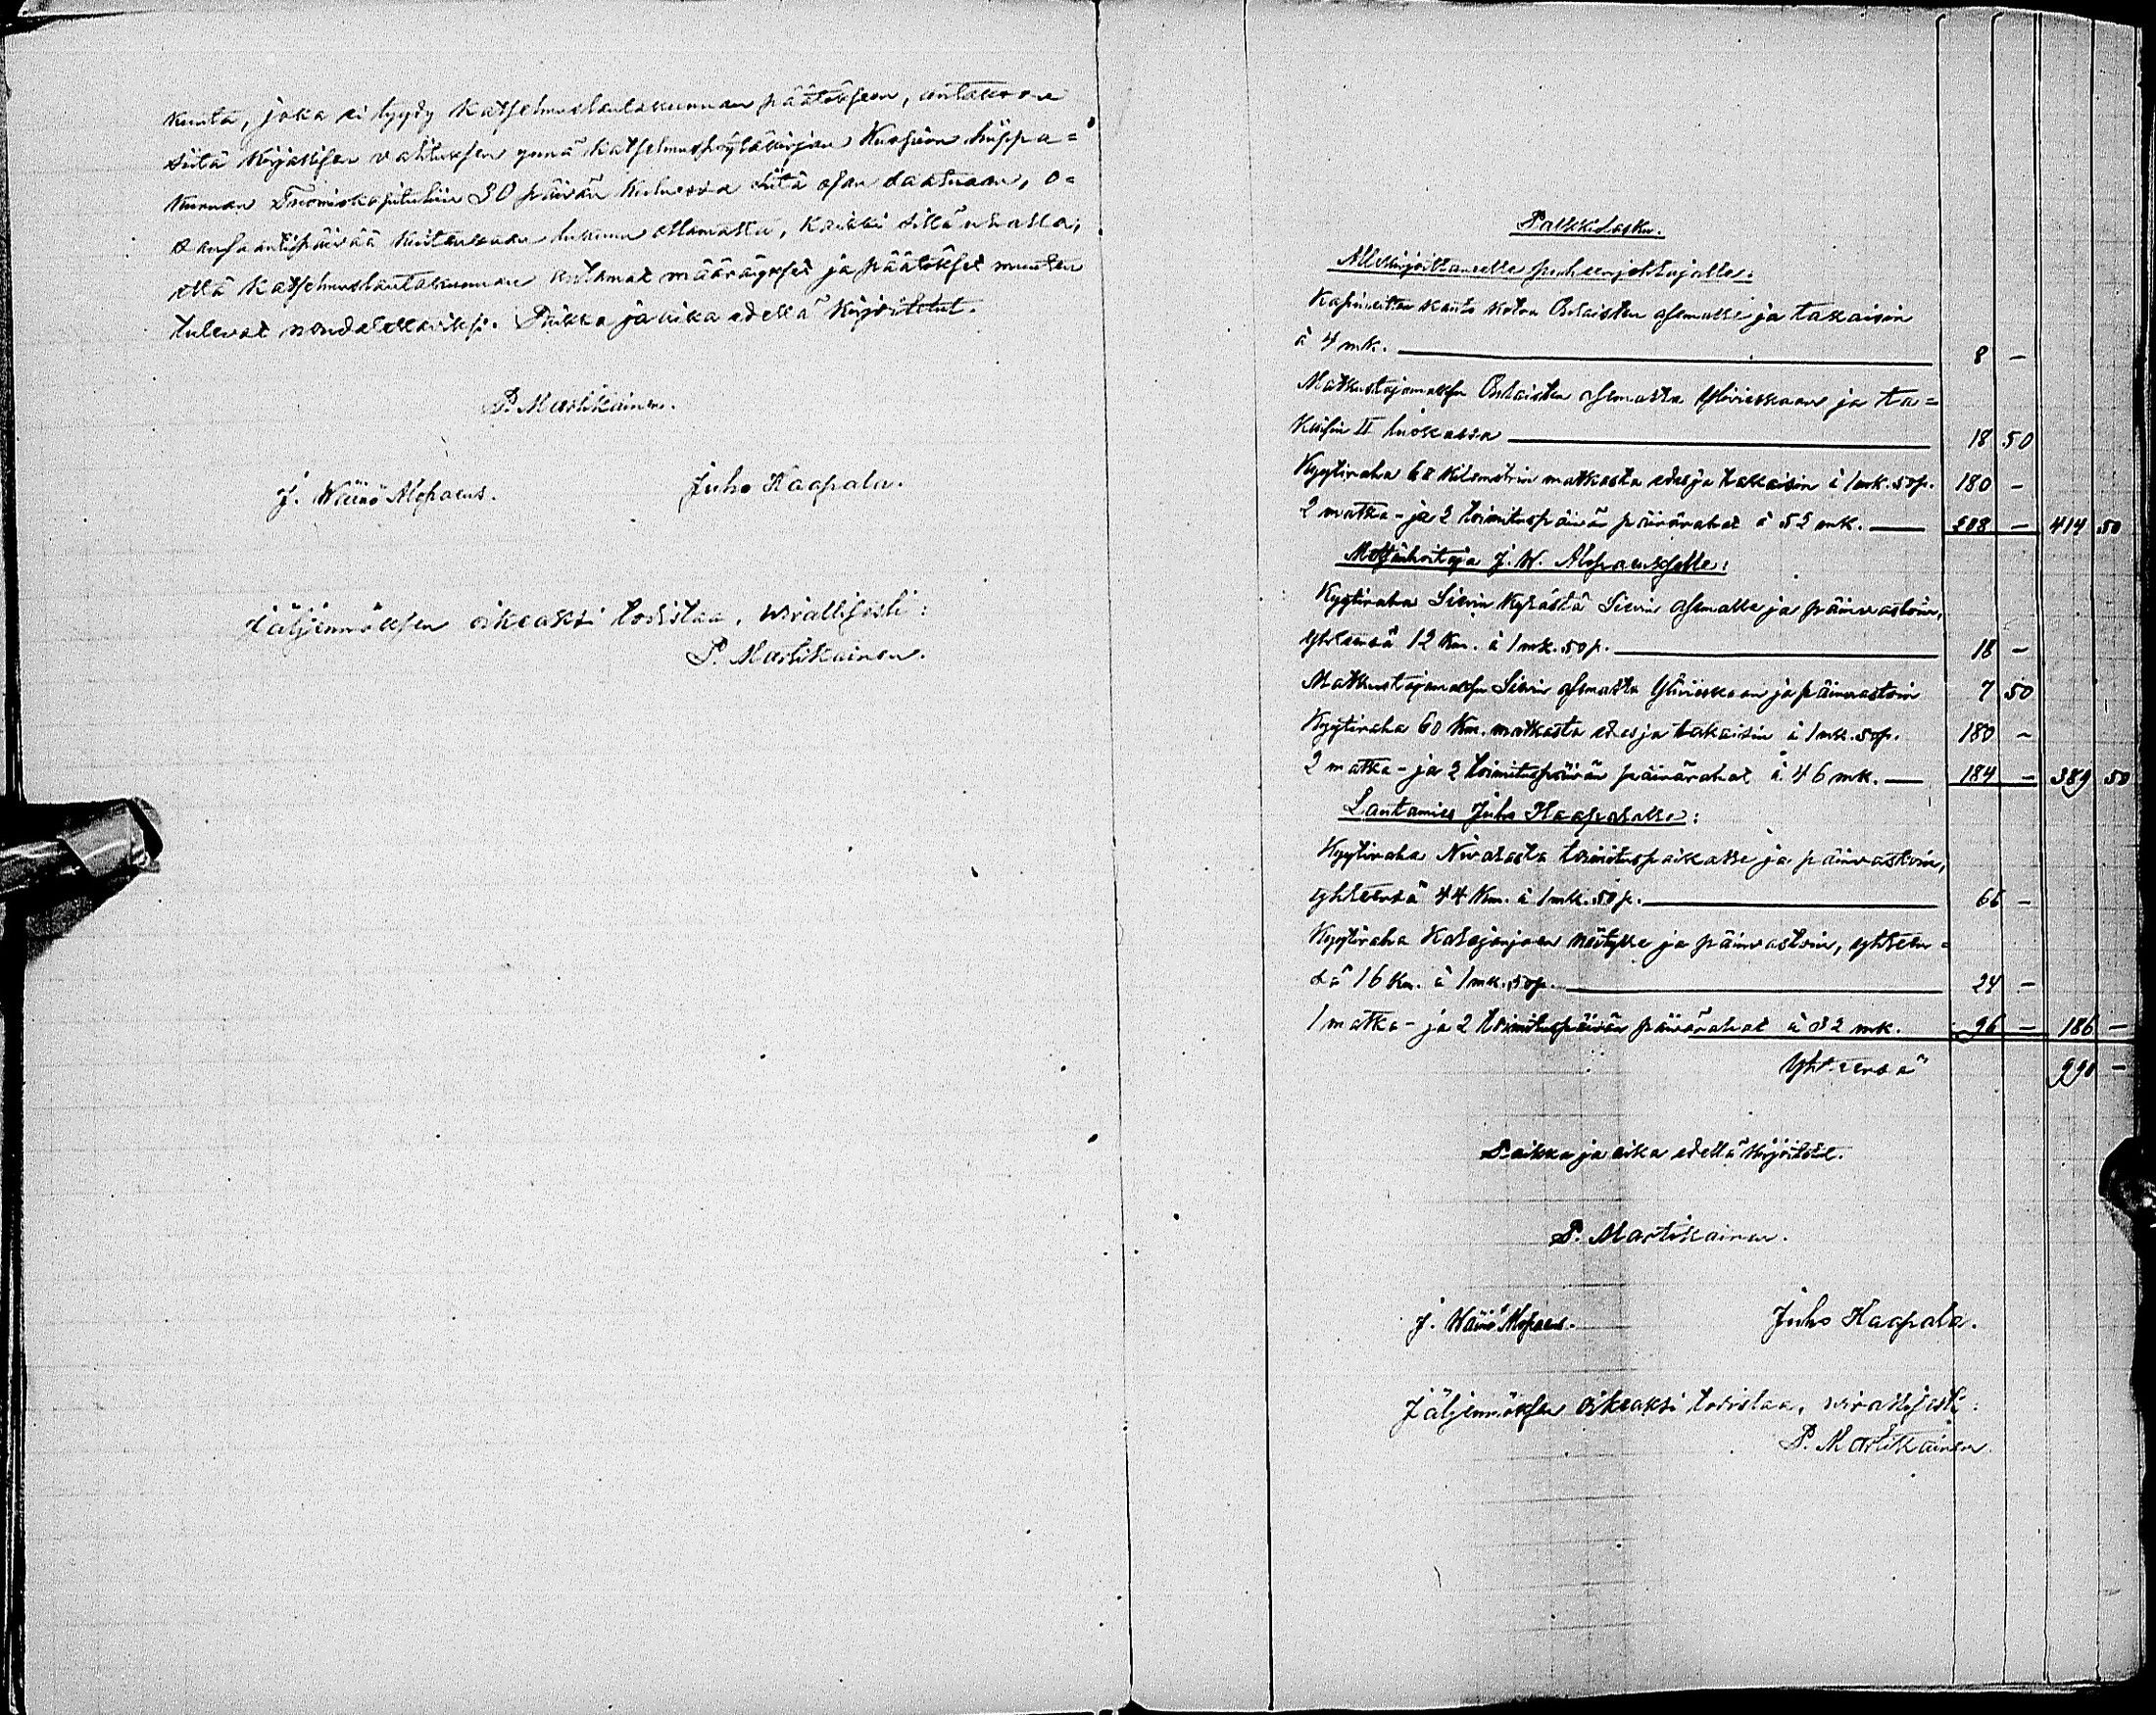 kunta, joka ei tyydy katselmuslautakunnan päätökseen, antakoon
siitä kirjallisen valituksen ynnä katselmuspöytäkirjan Kuopion hiippa=
kunnan Tuomiokapituliin 30 päivän kuluessa siitä
antipäivää kuitenkaan lukuun ottamatta, kaikki sillä uhalla,
että katselmuslautakunnan antamat määräykset ja päätökset muuten
tulevat noudatettaviksi. Paikka ja aika edellä kirjoitetut.
P. Martikainen.
J. Wäinö Alopaeus.
Juho Haapala.
Jäljennöksen oikeaksi todistaa, virallisesti:
P. Martikainen.
Palkkiolasku.
Allekirjoittaneelle puheenjohtajalle:
kotoa Oulaisten asemalle ja takaisin
à 4 mk. 8 –
Matkustajamaksu Oulaisten asemalta Ylivieskaan ja ta=
kaisin II luokassa 18 50
Kyytiraha 60 kilometrin matkasta edes ja takaisin à 1 mk. 50 p. 180 –
2 matka- ja 2 toimituspäivän päivärahat à 52 mk. 208 – 414 50
Metsänhoitaja J. W. Alopaeukselle:
Kyytiraha Sievin kylästä Sievin asemalle ja päinvastoin,
yhteensä 12 km. à 1 mk. 50 p. 18 –
Matkustajamaksu Sievin asemalta Ylivieskaan ja päinvastoin 7 50
Kyytiraha 60 km. matkasta edes ja takaisin à 1 mk. 50 p. 180 –
2 matka- ja 2 toimituspäivän päivärahat à 46 mk. 184 – 389 50
Lautamies Juho Haapalalle:
Kyytiraha Nivalasta toimituspaikalle ja päinvastoin,
yhteensä 44 km. à 1 mk. 50 p. 66 –
Kyytiraha Kalajanjoen niitylle ja päinvastoin, yhteen=
sä 16 km. à 1 mk. 50 p. 24 –
1 matka- ja 2 toimituspäivän päivärahat à 32 mk. 96 – 186 –
Yhteensä 990 –
Paikka ja aika edellä kirjoitetut.
P. Martikainen.
J. Wäinö Alopaeus.
Juho Haapala.
Jäljennöksen oikeaksi todistaa, virallisesti:
P. Martikainen.